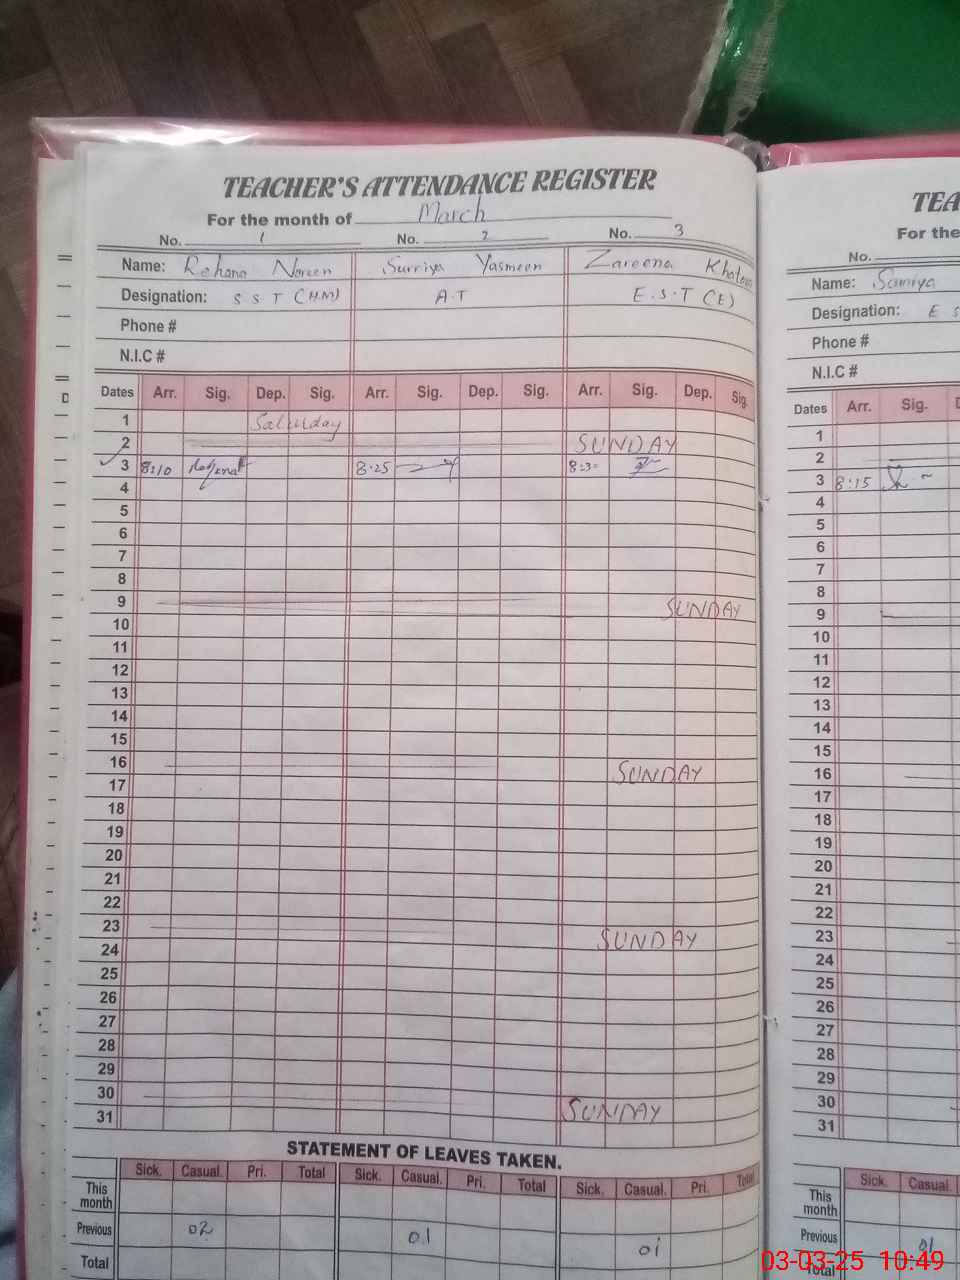 TEACHER'S ATTENDANCE REGISTER
For the month of March
No. 1 No. 2 No. 3
Name: Rehana Noreen Surriya Yasmeen Zareena Khatoon
Designation: S S T (H.M) A.T E.S.T (E)
Phone #
N.I.C #
Dates Arr. Sig. Dep. Sig. Arr. Sig. Dep. Sig. Arr. Sig. Dep. Sig.
1 Saturday
2 SUNDAY
3 8:10 8:25 8:3-
4
5
6
7
8
9 SUNDAY
10
11
12
13
14
15
16 SUNDAY
17
18
19
20
21
22
23 SUNDAY
24
25
26
27
28
29
30 SUNDAY
31
STATEMENT OF LEAVES TAKEN.
Sick. Casual. Pri. Total Sick. Casual. Pri. Total Sick. Casual. Pri. Total
This month
Previous 02 01 01
Total
TEA
For the
No.
Name: Samiya
Designation: E S
Phone #
N.I.C #
Dates Arr. Sig. D
1
2
3 8:15
4
5
6
7
8
9
10
11
12
13
14
15
16
17
18
19
20
21
22
23
24
25
26
27
28
29
30
31
Sick. Casual.
This month
Previous 01
Total
03-03-25 10:49